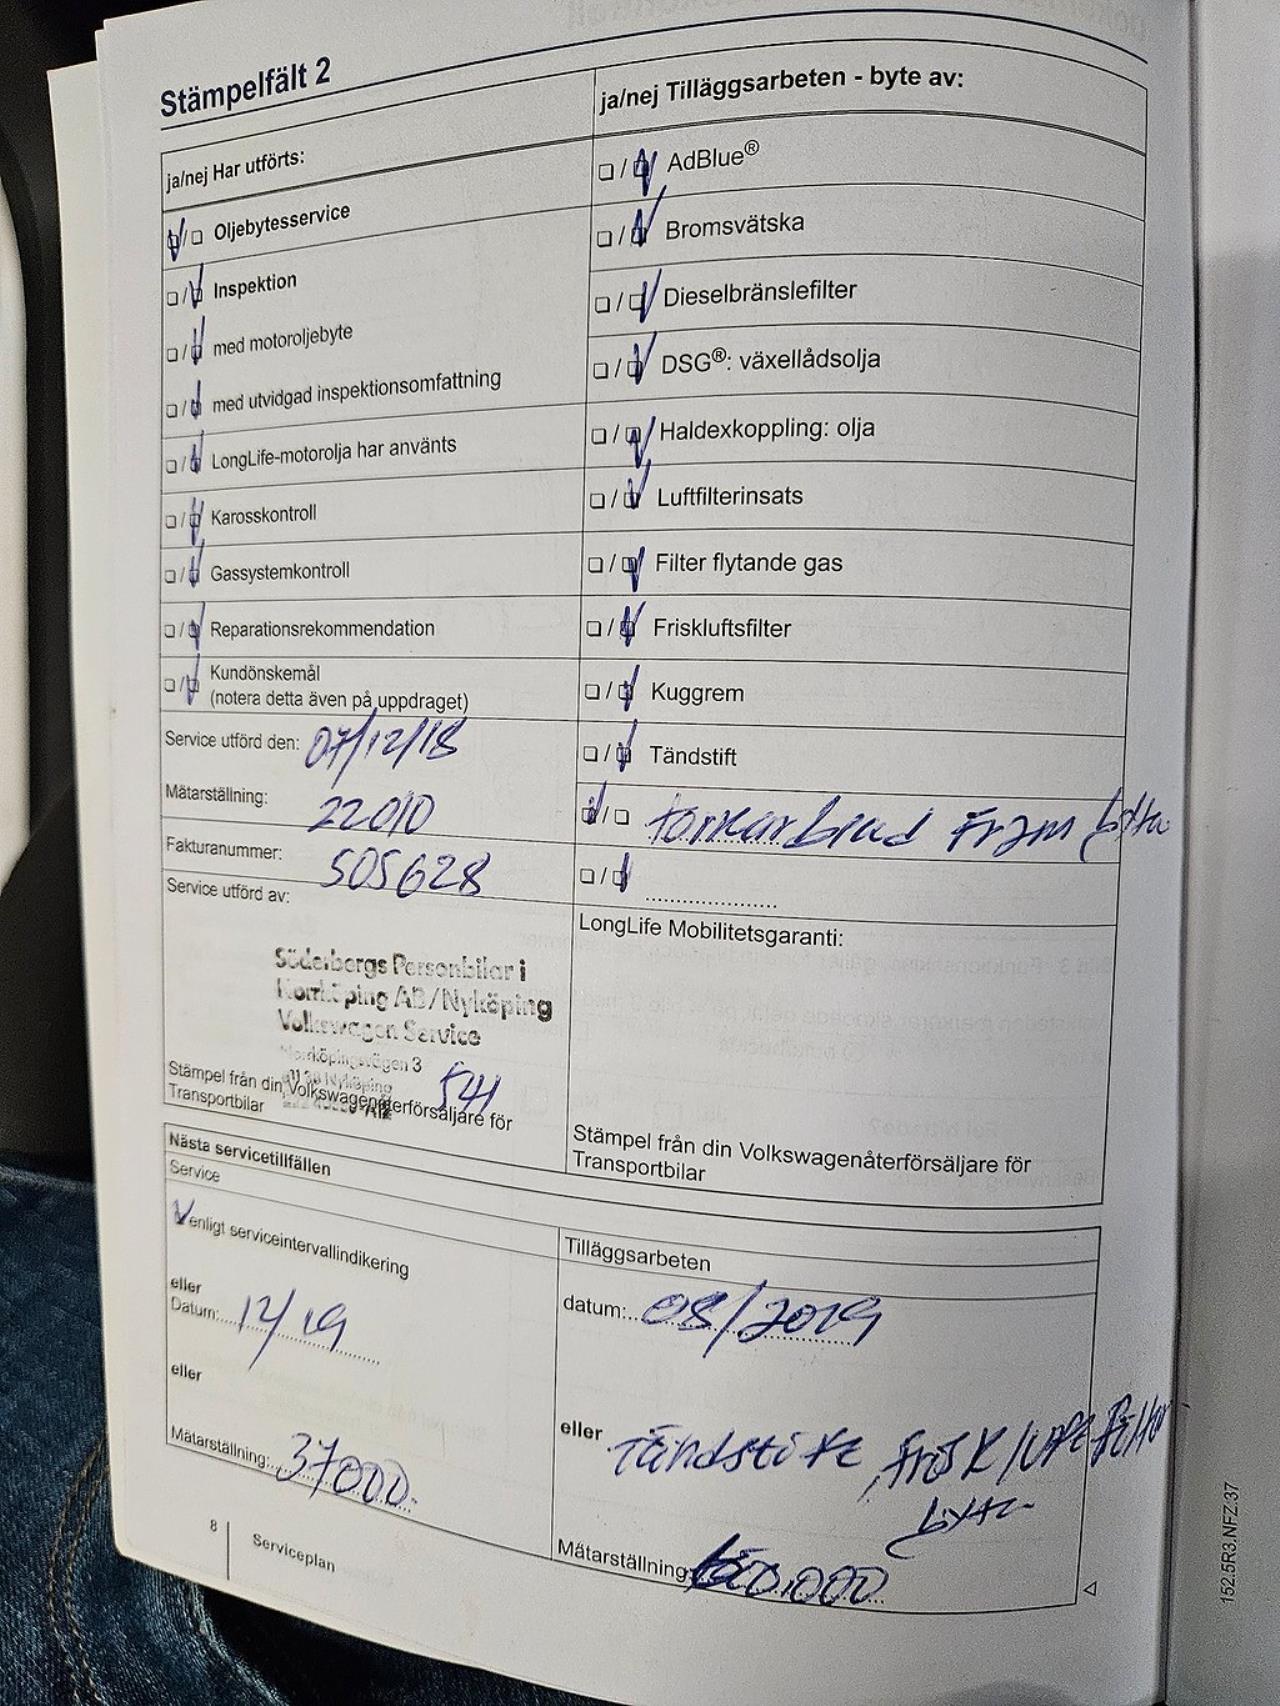 Stämpelfält 2
ja/nej Har utförts:
Oljebytesservice
Inspektion
med motoroljebyte
med utvidgad inspektionsomfattning
LongLife-motorolja har använts
Karosskontroll
Gassystemkontroll
Reparationsrekommendation
Kundönskemål
(notera detta även på uppdraget)
Service utförd den: 07/12/18
Mätarställning: 22010
Fakturanummer: 505628
Service utförd av:
Söderbergs Personbilar i
Norrköping AB/Nyköping
Volkswagen Service
Norrköpingsvägen 3
Nyköping
541
Stämpel från din Volkswagenåterförsäljare för
Transportbilar
ja/nej Tilläggsarbeten - byte av:
AdBlue®
Bromsvätska
Dieselbränslefilter
DSG®: växellådsolja
Haldexkoppling: olja
Luftfilterinsats
Filter flytande gas
Friskluftsfilter
Kuggrem
Tändstift
torkarblad Fram bytta
LongLife Mobilitetsgaranti:
Stämpel från din Volkswagenåterförsäljare för
Transportbilar
Nästa servicetillfällen
Service
enligt serviceintervallindikering
eller
Datum: 12/19
eller
Mätarställning: 37000
Tilläggsarbeten
datum: 08/2019
eller Tändstift
Mätarställning:
8 Serviceplan
152.5R3.NFZ.37